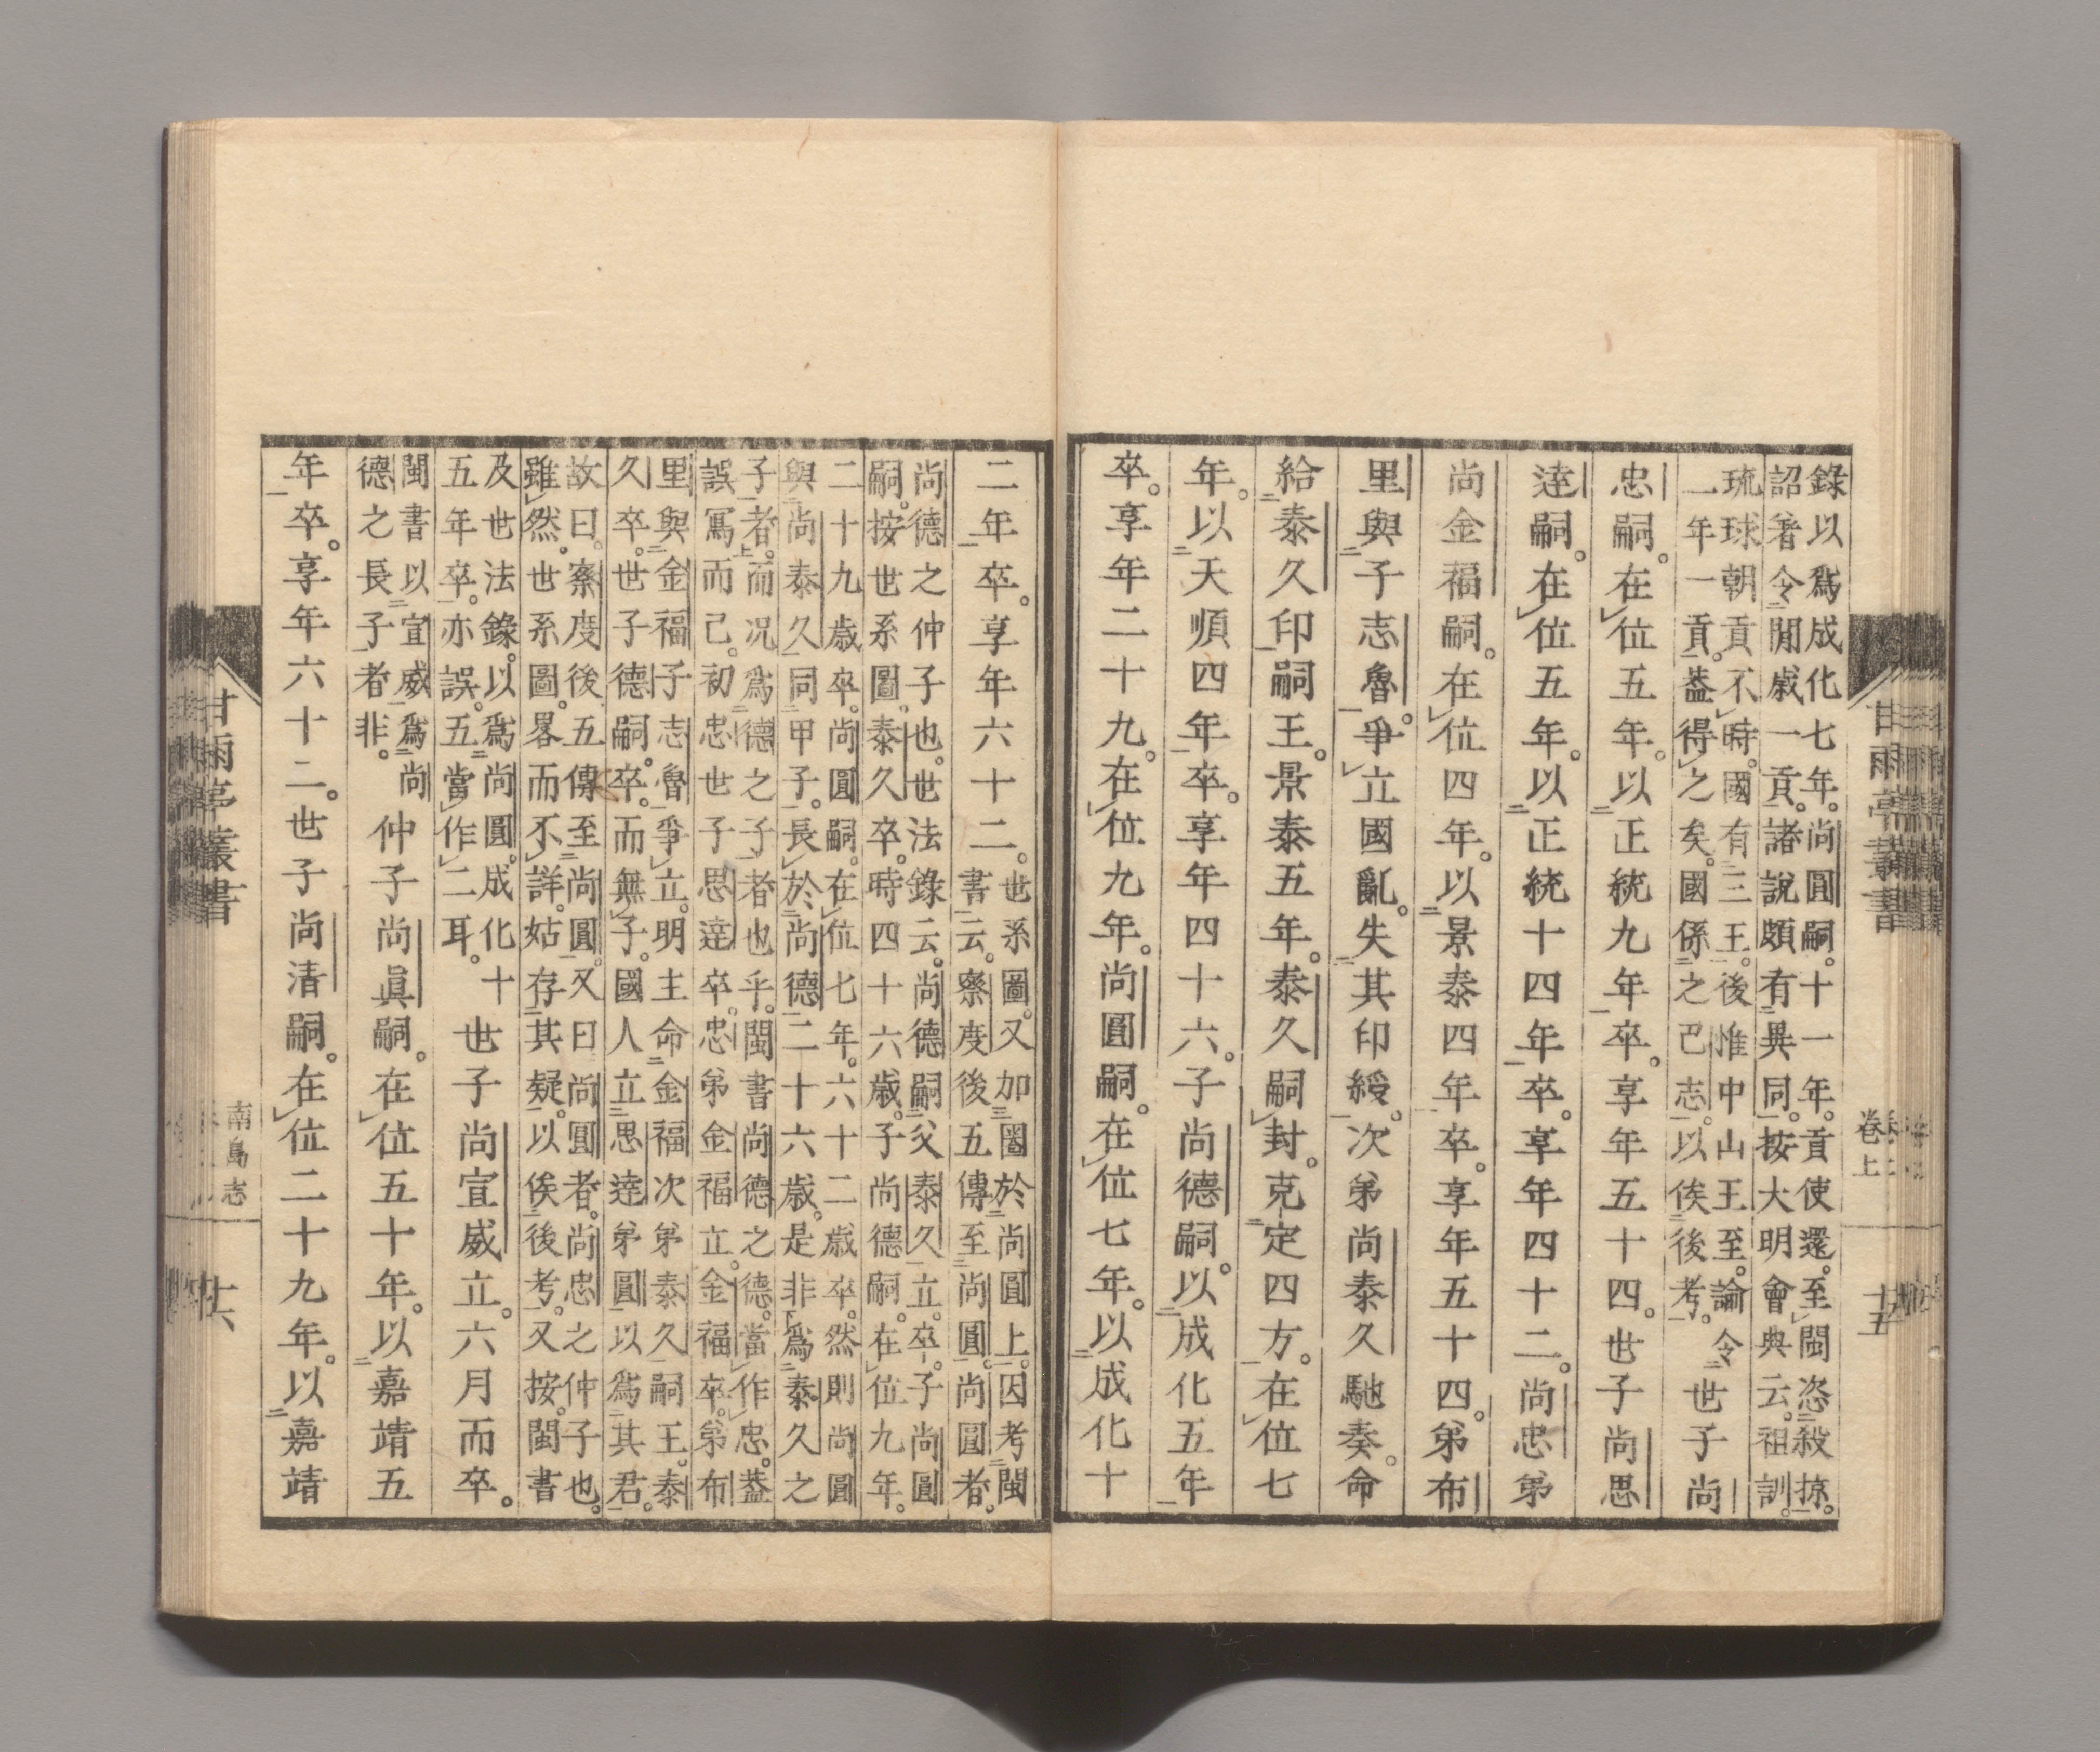 甘雨亭叢書
卷上
十五
錄以爲成化七年。尚圓嗣。十一年。貢使還。至閩恣殺掠。
詔著令。閒歲一貢。諸說頗有異同。按大明會典云。祖訓。
琉球朝貢不時。國有三王。後惟中山王至。諭令
一年一貢。葢得之矣。國係之巴志。以俟後考。
世子尚
忠嗣。在位五年。以正統九年卒。享年五十四。世子尚思
達嗣。在位五年。以正統十四年卒。享年四十二。尚忠弟
尚金福嗣。在位四年。以景泰四年卒。享年五十四。弟布
里與子志魯爭立國亂。失其印綬。次弟尚泰久馳奏。命
給泰久印嗣王。景泰五年。泰久嗣封。克定四方。在位七
年。以天順四年卒。享年四十六。子尚德嗣。以成化五年
卒。享年二十九。在位九年。尚圓嗣。在位七年。以成化十
二年卒。享年六十二。
世系圖。又加圈於尚圓上。因考閩
書云。察度後五傳至尚圓。尚圓者。
尚德之仲子也。世法錄云。尚德嗣父泰久立。卒。子尚圓
嗣。按世系圖。泰久卒。時四十六歲。子尚德嗣。在位九年。
二十九歲卒。尚圓嗣。在位七年。六十二歲卒。然則尚圓
與尚泰久同甲子。長於尚德二十六歲。是非爲泰久之
子者。而况爲德之子者也乎。閩書尚德之德。當作忠。葢
誤寫而已。初忠世子思達卒。忠弟金福立。金福卒。弟布
里與金福子志魯爭立。明主命金福次弟泰久嗣王。泰
久卒。世子德嗣。卒。而無子。國人立思達弟圓以爲其君。
故曰。察度後五傳至尚圓。又曰尚圓者。尚忠之仲子也。
雖然。世系圖。畧而不詳。姑存其疑。以俟後考。又按。閩書
及世法錄。以爲尚圓。成化十
五年卒。亦誤。五當作二耳。
世子尚宣威立。六月而卒。
閩書以宣威爲尚
德之長子者非。
仲子尚眞嗣。在位五十年。以嘉靖五
年卒。享年六十二。世子尚清嗣。在位二十九年。以嘉靖
甘雨亭叢書
南島志
十六